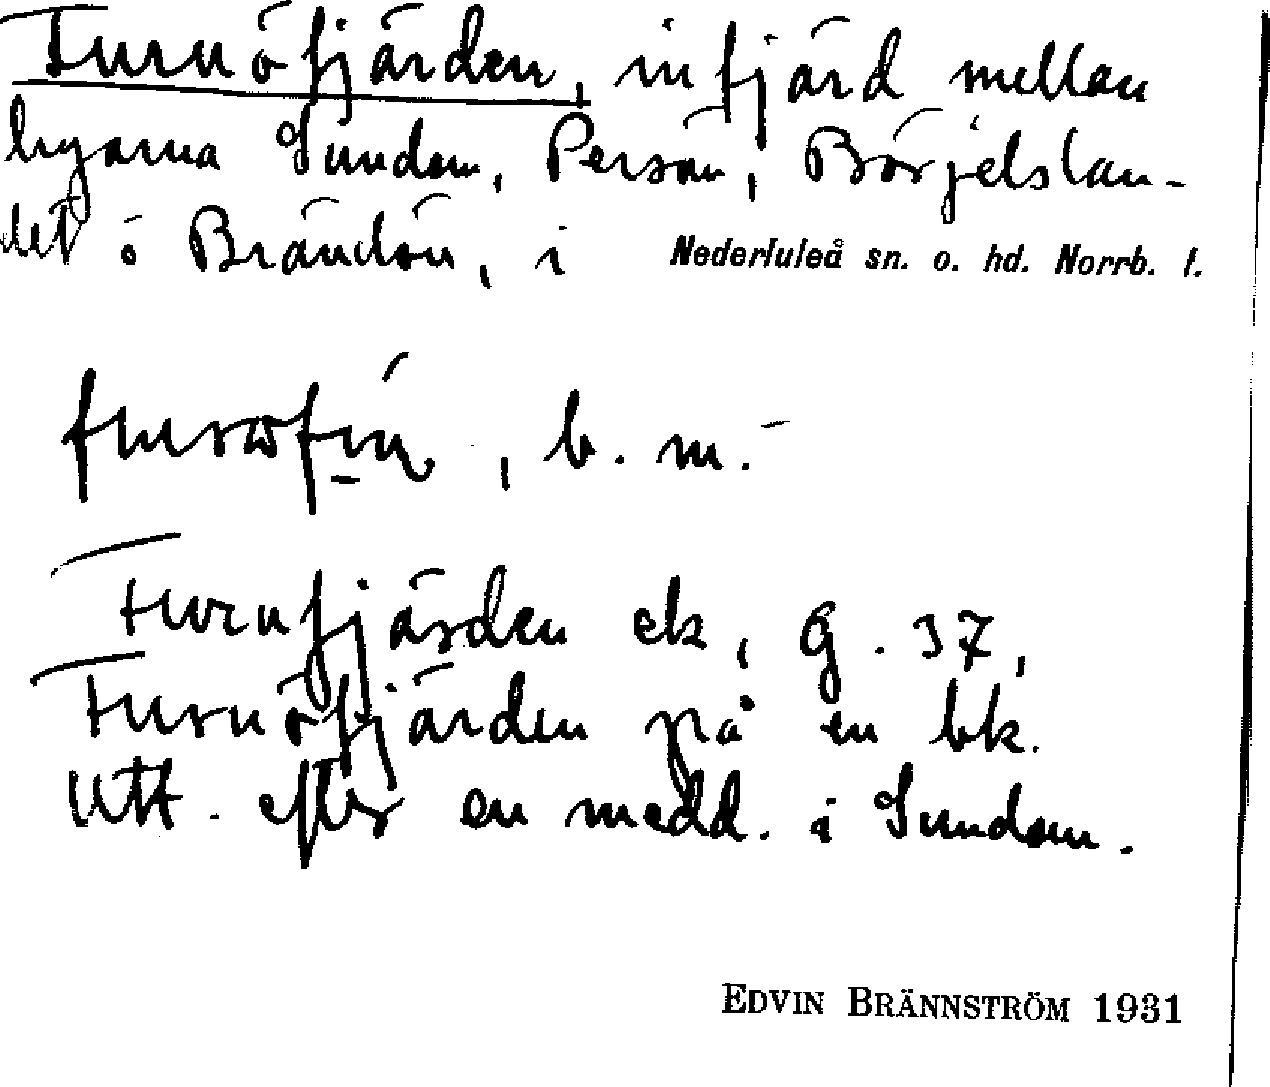 Furuöfjärden, infjärd mellan
byarna Sundom, Persön, Börjelslan-
det o Brändön, i Nederluleå sn. o. hd. Norrb. l.
, b. m.
Furufjärden ek, G. 37,
Furuöfjärden på en bk.
Utt. efter en medd. i Sundom.
EDVIN BRÄNNSTRÖM 1931